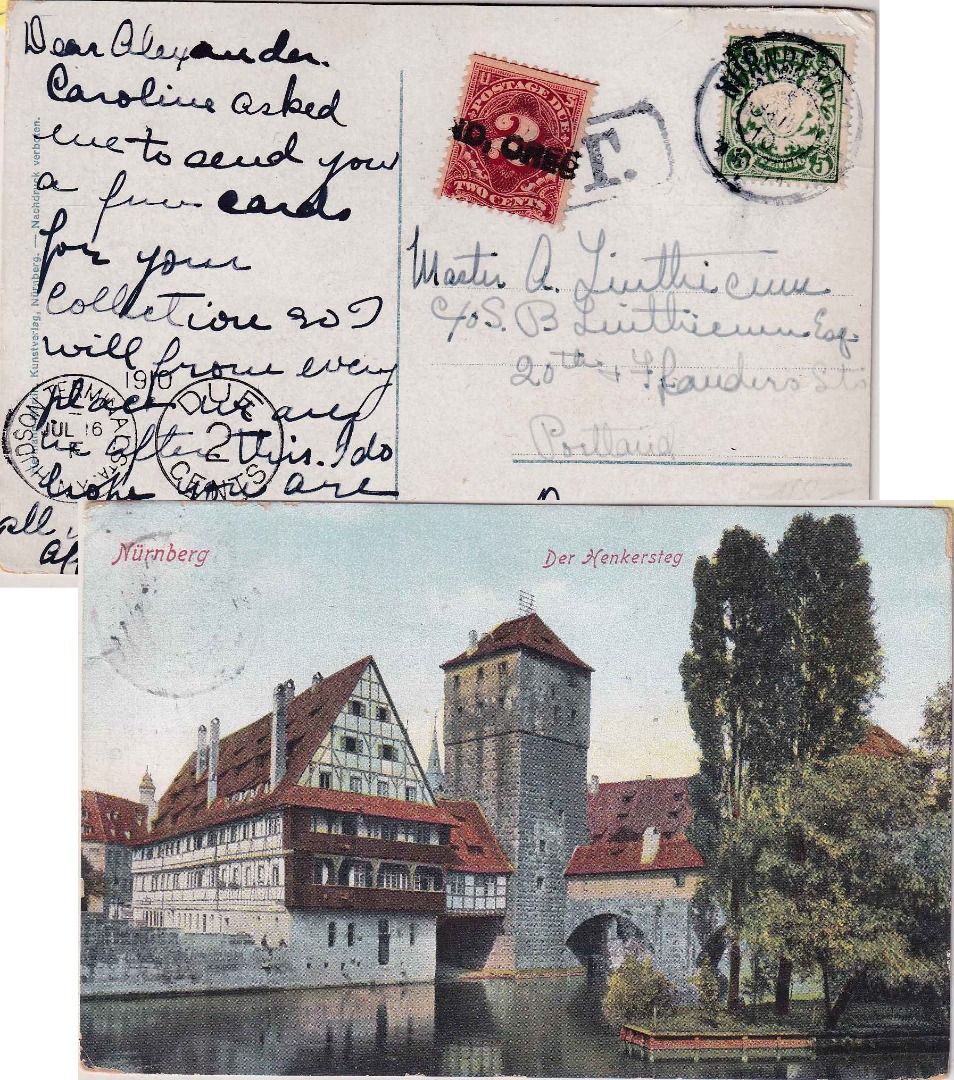 Dear Alexander.
Caroline asked
me to send you
a few cards
for your
Collection so I
will from every
place we are
in after this. I do
hope you are
all
POSTAGE DUE
2
TWO CENTS
ND, OREG
T.
5
Master A. Linthicum
c/o S. B Linthicum Esq.
20th & Flanders Sts
Portland
Kunstverlag, Nürnberg. — Nachdruck verboten.
HUDSON TERMINAL STA.
JUL 16
1910
DUE
2
CENTS
Nürnberg
Der Henkersteg